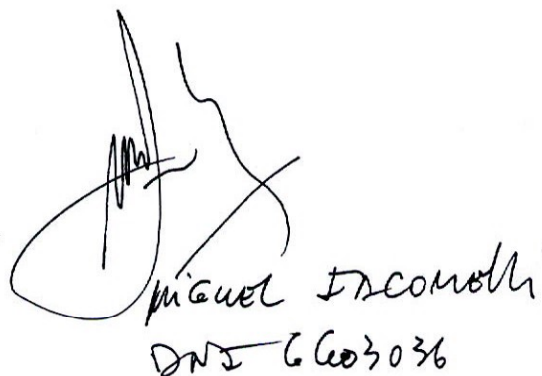 MIGUEL IACOMELLI
DNI 6603036